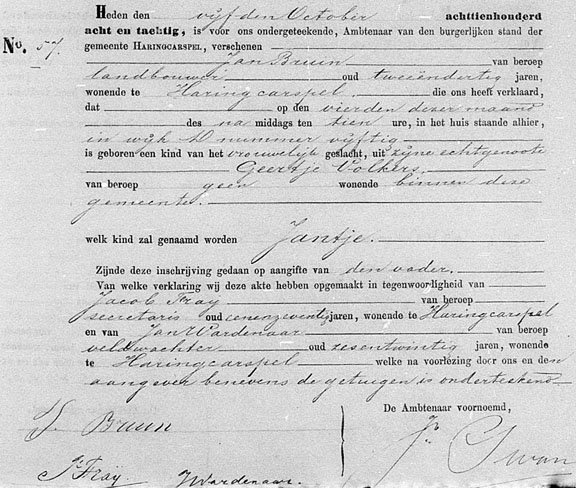 Heden den vijfden October achttienhonderd
acht en tachtig, is voor ons ondergeteekende, Ambtenaar van den burgerlijken stand der
No. 57.
gemeente HARINGCARSPEL, verschenen
Jan Bruin van beroep
landbouwer oud tweeëndertig jaren,
wonende te Haringcarspel die ons heeft verklaard,
dat op den vierden dezer maand
des na middags ten tien ure, in het huis staande alhier,
in wijk D nummer vijftig
is geboren een kind van het vrouwelijk geslacht, uit zijne echtgenoote
Geertje Volkers
van beroep geen wonende binnen deze
gemeente.
welk kind zal genaamd worden Jantje.
Zijnde deze inschrijving gedaan op aangifte van den vader.
Van welke verklaring wij deze akte hebben opgemaakt in tegenwoordigheid van
Jacob Fray van beroep
secretaris oud eenenzeventig jaren, wonende te Haringcarspel
en van Jan Wardenaar van beroep
veldwachter oud zesentwintig jaren, wonende
te Haringcarspel welke na voorlezing door ons en den
aangever benevens de getuigen is onderteekend
De Ambtenaar voornoemd,
J. Bruin
Jb Swan
Jb Fraij Wardenaar